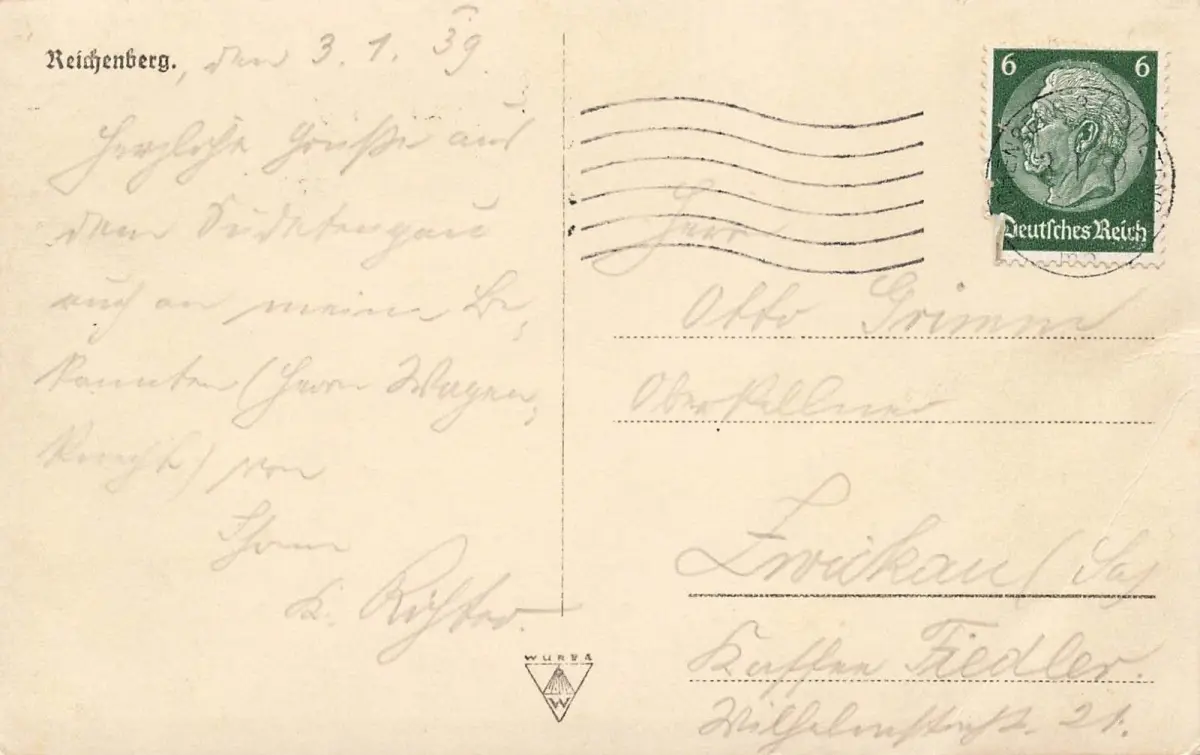 Reichenberg., den 3. 1. 39.
Herzliche Grüße aus
dem Sudetengau
auch an meine Be-
kannten (Herrn Wagen-
knecht) von
Ihrem
K. Richter.
6 6
Deutsches Reich
Herrn
Otto Grimm
Oberkellner
Zwickau (Sa)
Kaffee Fiedler.
Wilhelmstraße 21.
WURBA
W